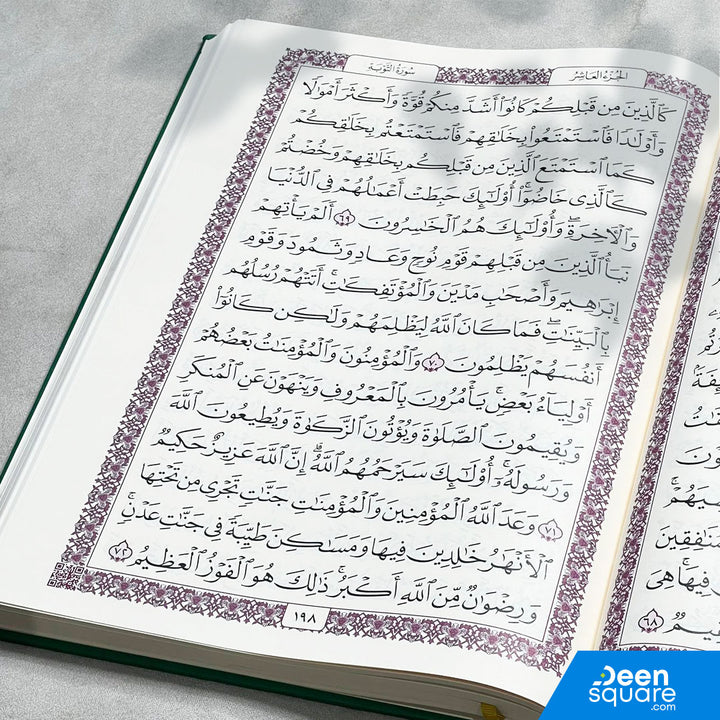 الجُزْءُ العَاشِرُ
سُورَةُ التَّوْبَةِ
كَٱلَّذِينَ مِن قَبْلِكُمْ كَانُوٓا۟ أَشَدَّ مِنكُمْ قُوَّةً وَأَكْثَرَ أَمْوَٰلًا
وَأَوْلَٰدًا فَٱسْتَمْتَعُوا۟ بِخَلَٰقِهِمْ فَٱسْتَمْتَعْتُم بِخَلَٰقِكُمْ
كَمَا ٱسْتَمْتَعَ ٱلَّذِينَ مِن قَبْلِكُم بِخَلَٰقِهِمْ وَخُضْتُمْ
كَٱلَّذِى خَاضُوٓا۟ ۚ أُو۟لَٰٓئِكَ حَبِطَتْ أَعْمَٰلُهُمْ فِى ٱلدُّنْيَا
وَٱلْءَاخِرَةِ ۖ وَأُو۟لَٰٓئِكَ هُمُ ٱلْخَٰسِرُونَ ٦٩ أَلَمْ يَأْتِهِمْ
نَبَأُ ٱلَّذِينَ مِن قَبْلِهِمْ قَوْمِ نُوحٍ وَعَادٍ وَثَمُودَ وَقَوْمِ
إِبْرَٰهِيمَ وَأَصْحَٰبِ مَدْيَنَ وَٱلْمُؤْتَفِكَٰتِ ۚ أَتَتْهُمْ رُسُلُهُم
بِٱلْبَيِّنَٰتِ ۖ فَمَا كَانَ ٱللَّهُ لِيَظْلِمَهُمْ وَلَٰكِن كَانُوٓا۟
أَنفُسَهُمْ يَظْلِمُونَ ٧٠ وَٱلْمُؤْمِنُونَ وَٱلْمُؤْمِنَٰتُ بَعْضُهُمْ
أَوْلِيَآءُ بَعْضٍ ۚ يَأْمُرُونَ بِٱلْمَعْرُوفِ وَيَنْهَوْنَ عَنِ ٱلْمُنكَرِ
وَيُقِيمُونَ ٱلصَّلَوٰةَ وَيُؤْتُونَ ٱلزَّكَوٰةَ وَيُطِيعُونَ ٱللَّهَ
وَرَسُولَهُۥٓ ۚ أُو۟لَٰٓئِكَ سَيَرْحَمُهُمُ ٱللَّهُ ۗ إِنَّ ٱللَّهَ عَزِيزٌ حَكِيمٌ
٧١ وَعَدَ ٱللَّهُ ٱلْمُؤْمِنِينَ وَٱلْمُؤْمِنَٰتِ جَنَّٰتٍ تَجْرِى مِن تَحْتِهَا
ٱلْأَنْهَٰرُ خَٰلِدِينَ فِيهَا وَمَسَٰكِنَ طَيِّبَةً فِى جَنَّٰتِ عَدْنٍ ۚ
وَرِضْوَٰنٌ مِّنَ ٱللَّهِ أَكْبَرُ ۚ ذَٰلِكَ هُوَ ٱلْفَوْزُ ٱلْعَظِيمُ ٧٢
١٩٨
فِيهَا ۚ هِىَ
٦٨
Deen
square
.com